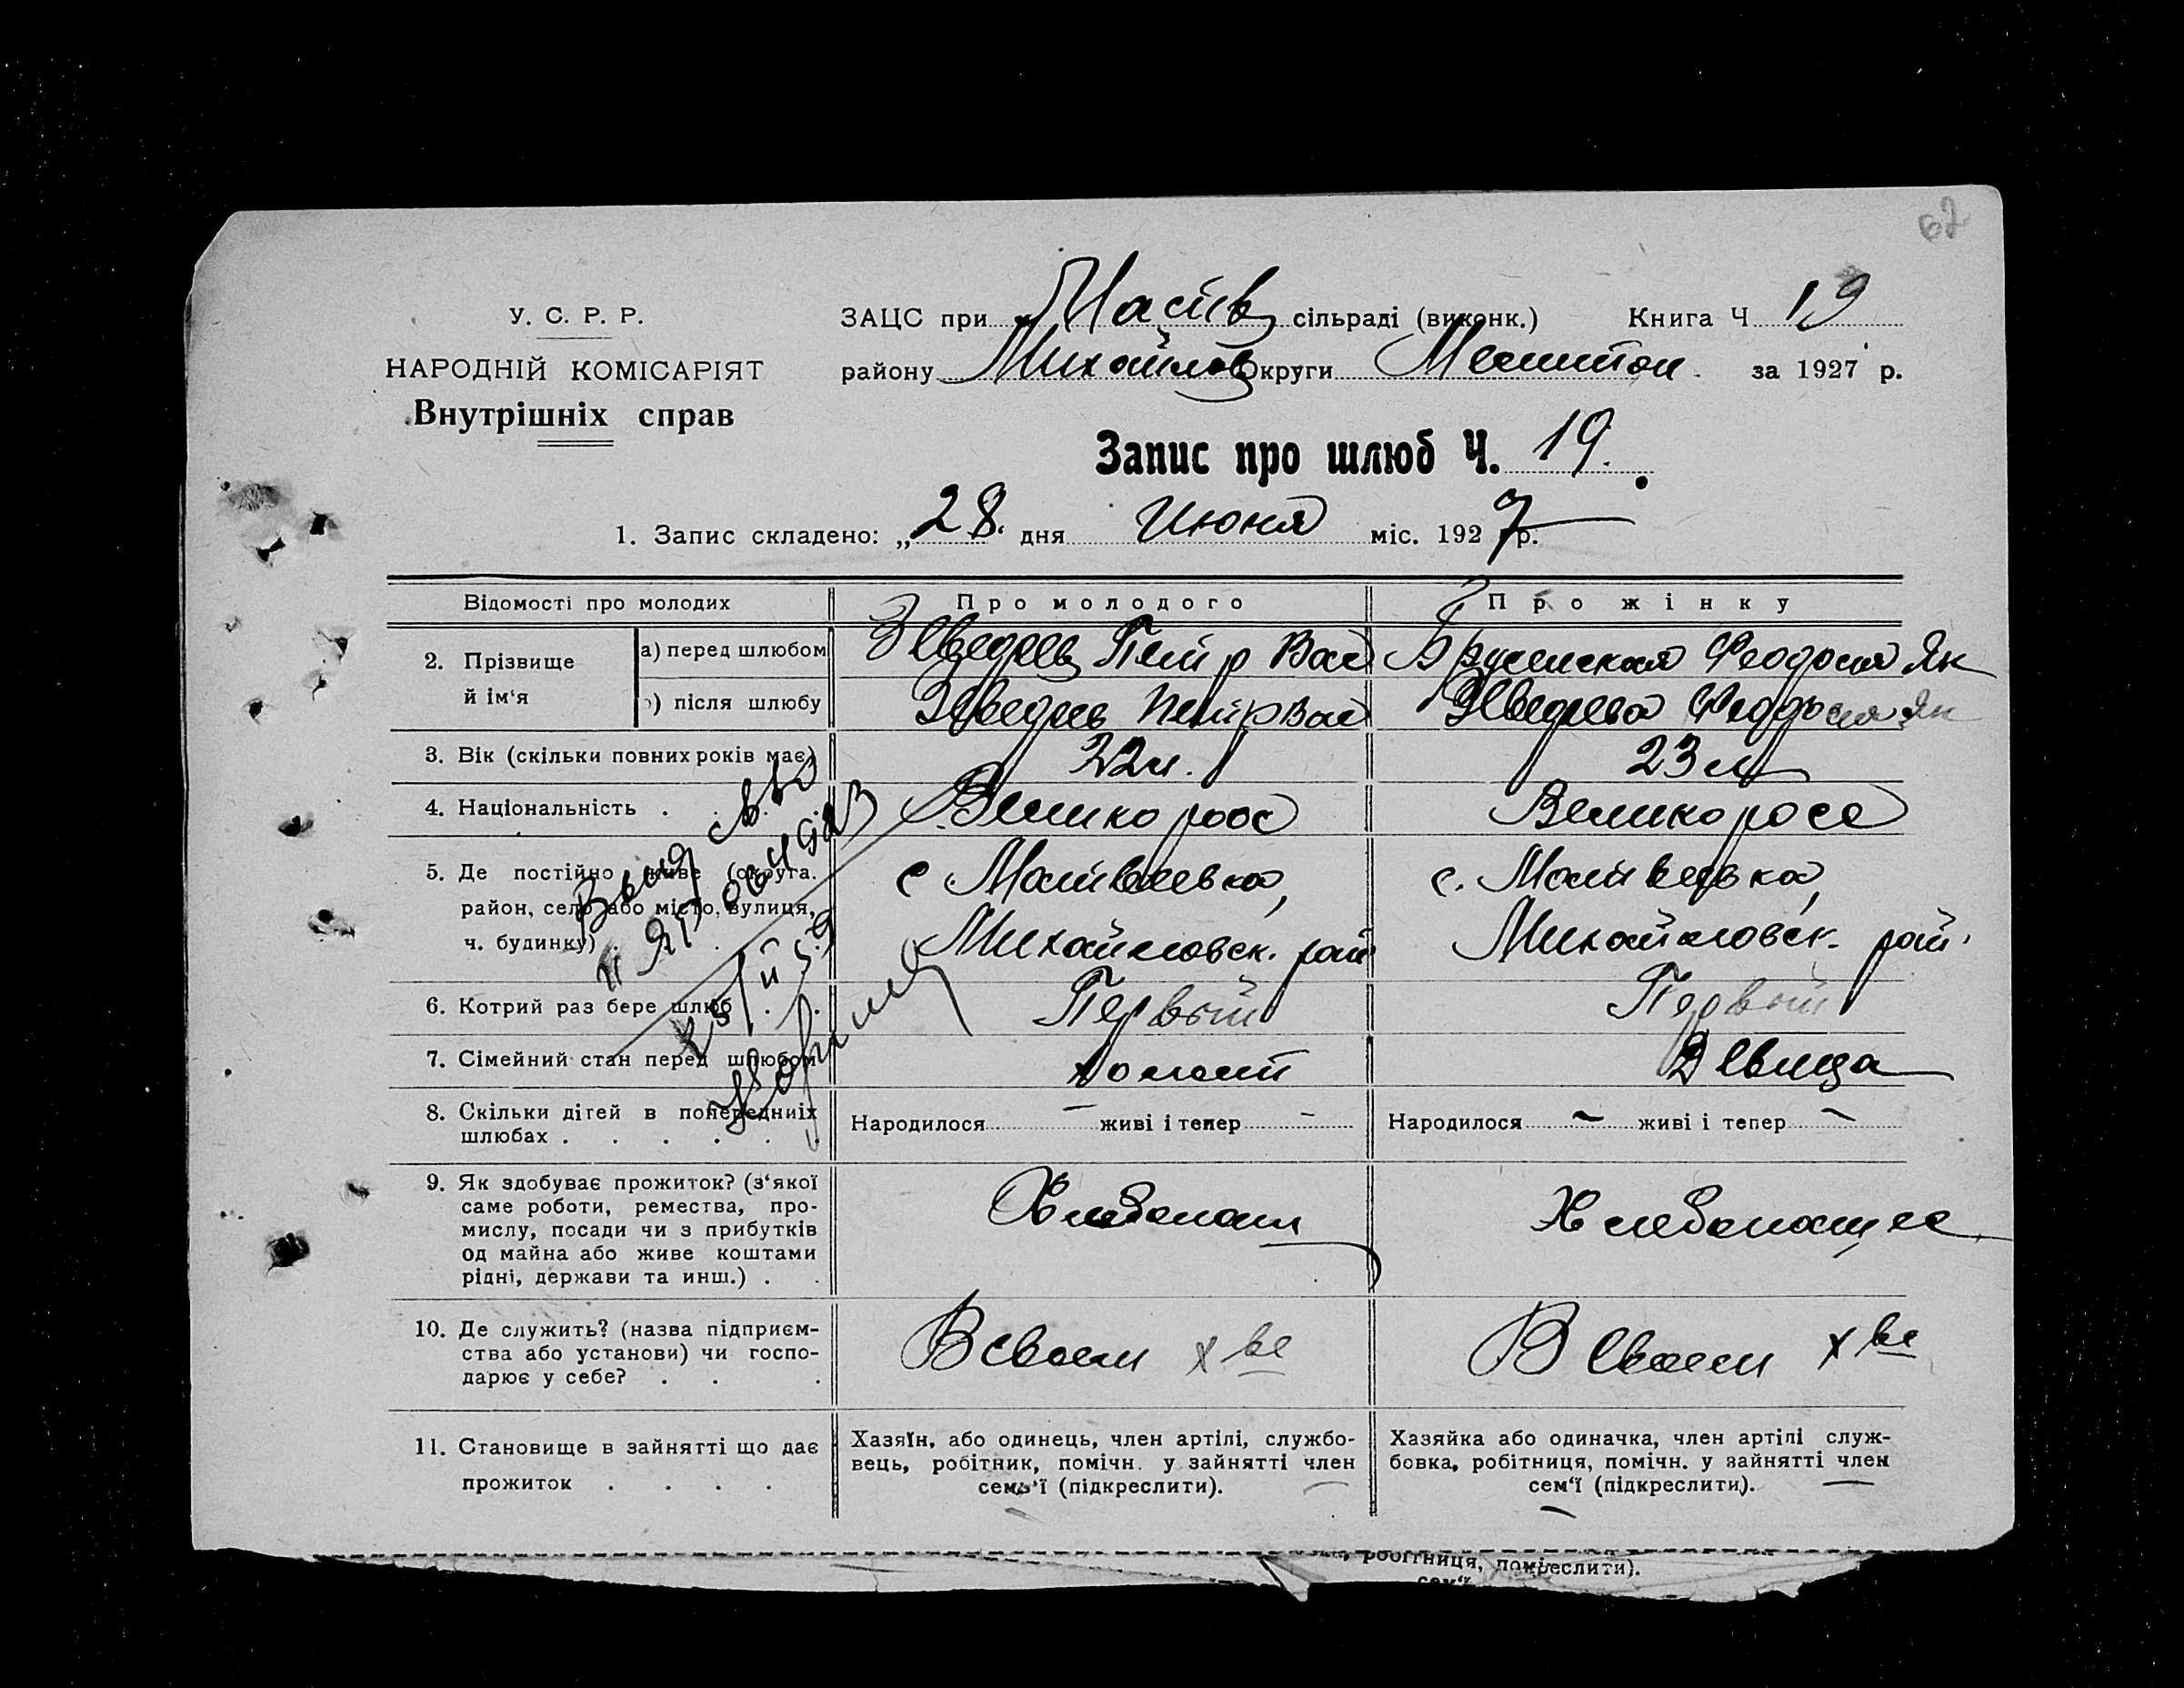 62
У. С. Р. Р.
НАРОДНІЙ КОМІСАРІЯТ
Внутрішніх справ
ЗАЦС при Матв сільраді (виконк.) Книга Ч 19
району Михайлов Округи Мелитоп. за 1927 р.
Запис про шлюб Ч. 19.
1. Запис складено: „28“ дня Июня міс. 1927 р.
Відомості про молодих
Про молодого
Про жінку
2. Прізвище й ім‘я
а) перед шлюбом
Петр Вас
Феодосия Як
) після шлюбу
Петр Вас
Феодосия Як
3. Вік (скільки повних років має)
22 л.
23 л
4. Національність . .
Великоросс
Великоросс
5. Де постійно живе (округа.
район, село або місто, вулиця,
ч. будинку) .
с Матвеевка,
Михайловск. рай
с. Матвеевка,
Михайловск. рай.
6. Котрий раз бере шлюб . .
Первый
Первый
7. Сімейний стан перед шлюбом
холост
Девица
8. Скільки дітей в попередниіх
шлюбах . . . . . .
Народилося – живі і тепер –
Народилося – живі і тепер –
9. Як здобуває прожиток? (з‘якої
саме роботи, ремества, про-
мислу, посади чи з прибутків
од майна або живе коштами
рідні, держави та инш.) . .
Хлебопаш
Хлебопащес
10. Де служить? (назва підприєм-
ства або установи) чи госпо-
дарює у себе? . . .
В своем х ве
В своем х ве
11. Становище в зайнятті що дає
прожиток . . . .
Хазяїн, або одинець, член артілі, службо-
вець, робітник, помічн. у зайнятті член
сем‘ї (підкреслити).
Хазяйка або одиначка, член артілі служ-
бовка, робітниця, помічн. у зайнятті член
сем‘ї (підкреслити).
робітниця,